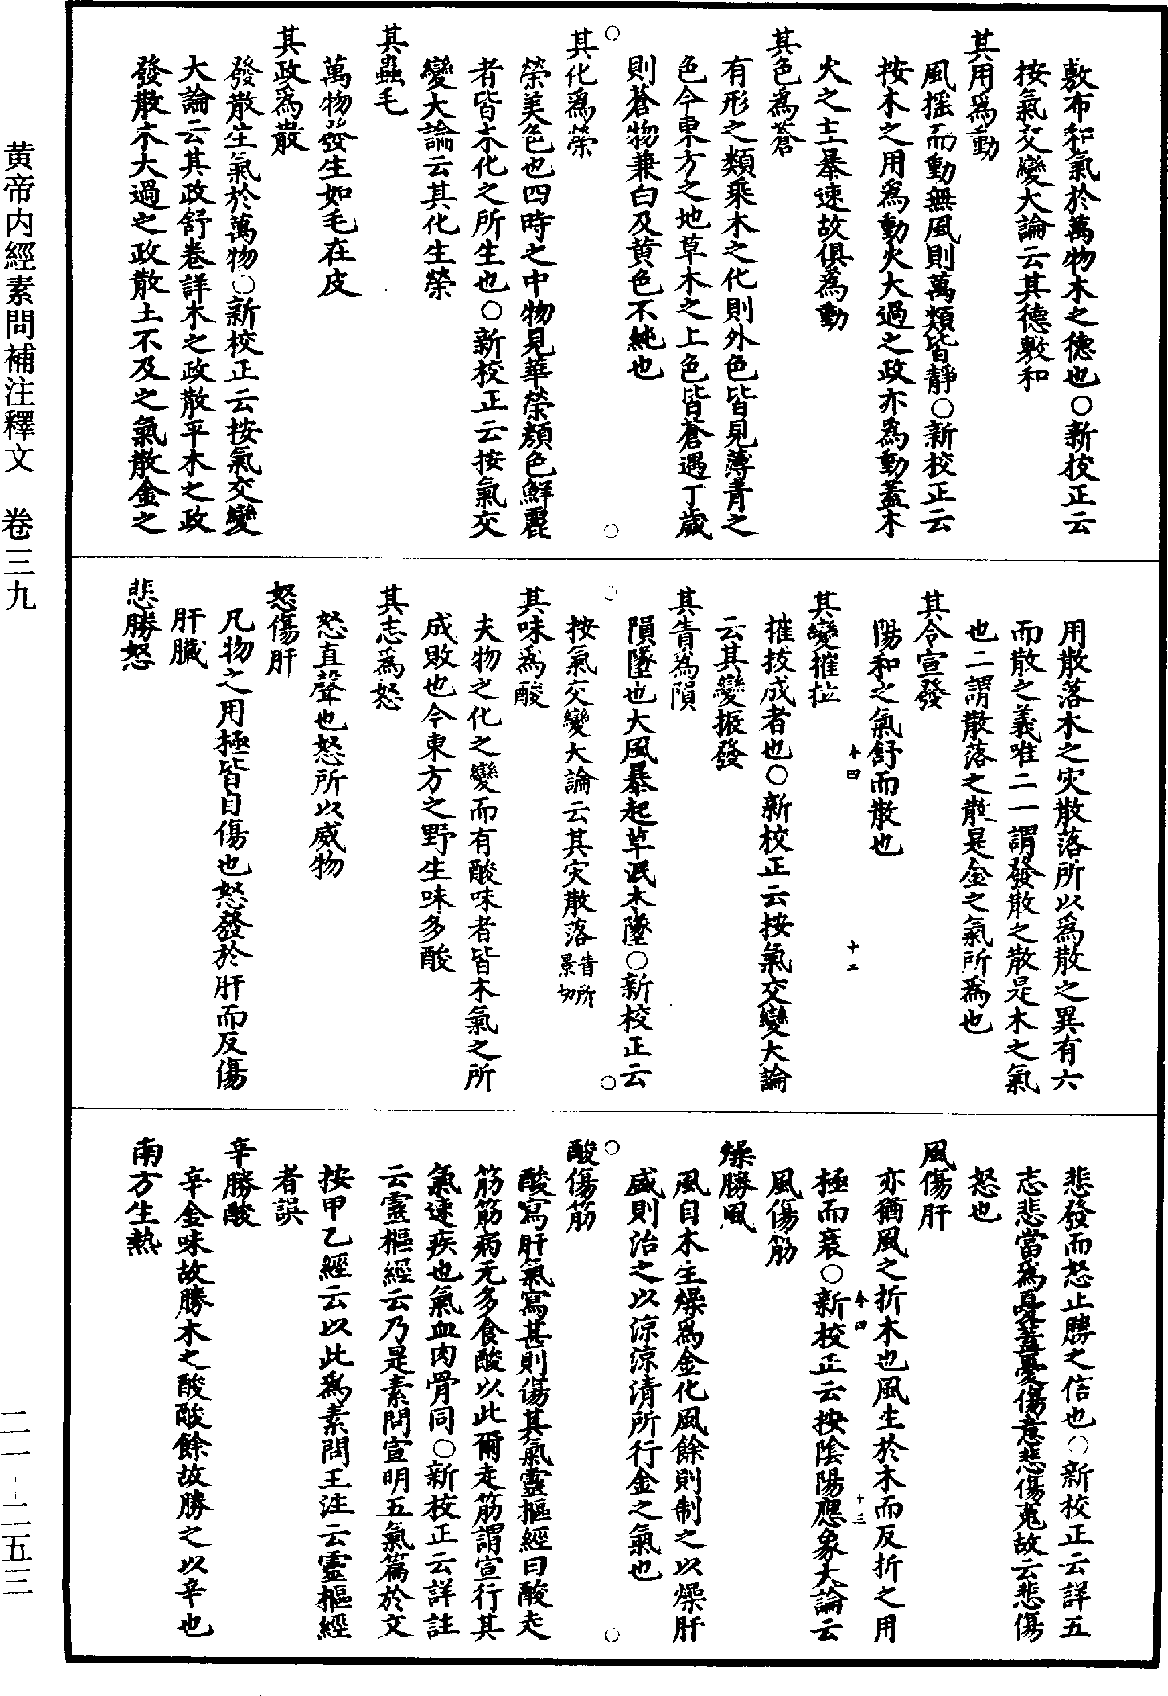 敷布和氣於萬物木之德也○新校正云
按氣交變大論云其德敷和
其用爲動
風搖而動無風則萬類皆靜○新校正云
按木之用爲動火大過之政亦爲動蓋木
火之主暴速故俱爲動
其色爲蒼
有形之類乘木之化則外色皆見薄青之
色今東方之地草木之上色皆蒼遇丁歲
則蒼物兼白及黄色不純也
其化爲榮
榮美色也四時之中物見華榮顔色鮮麗
者皆木化之所生也○新校正云按氣交
變大論云其化生榮
其蟲毛
萬物發生如毛在皮
其政爲散
發散生氣於萬物○新校正云按氣交變
大論云其政舒卷詳木之政散平木之政
發散木大過之政散土不及之氣散金之
用散落木之灾散落所以爲散之異有六
而散之義唯二一謂發散之散是木之氣
也二謂散落之散是金之氣所爲也
其令宣發
陽和之氣舒而散也
其變摧拉
摧拔成者也○新校正云按氣交變大論
云其變振發
其眚為隕
隕墜也大風暴起草泯木墜○新校正云
按氣交變大論云其灾散落眚所景切
其味爲酸
夫物之化之變而有酸味者皆木氣之所
成敗也今東方之野生味多酸
其志爲怒
怒直聲也怒所以威物
怒傷肝
凡物之用極皆自傷也怒發於肝而反傷
肝臟
悲勝怒
悲發而怒止勝之信也○新校正云詳五
志悲當爲憂蓋憂傷意悲傷䰟故云悲傷
怒也
風傷肝
亦猶風之折木也風生於木而反折之用
極而衰○新校正云按陰陽應象大論云
風傷筋
燥勝風
風自木生燥爲金化風餘則制之以燥肝
盛則治之以涼涼清所行金之氣也
酸傷筋
酸寫肝氣寫甚則傷其氣靈樞經曰酸走
筋筋病无多食酸以此爾走筋謂宣行其
氣速疾也氣血肉骨同○新校正云詳註
云靈樞經云乃是素問宣明五氣篇於文
按甲乙經云以此爲素問王注云靈樞經
者誤
辛勝酸
辛金味故勝木之酸酸餘故勝之以辛也
南方生熱
本四
十二
本四
十三
黄帝内經素問補注釋文 卷三九
二一-二五三